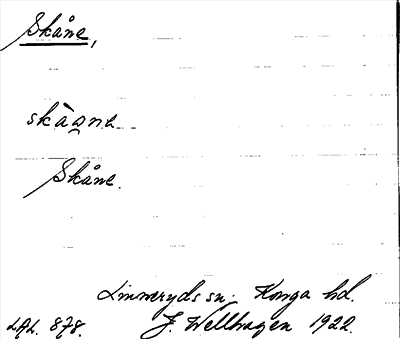 Skåne,
skàa̯ne
Skåne.
Linneryds sn. Konga hd.
LAL. 878. J. Wellhagen 1922.